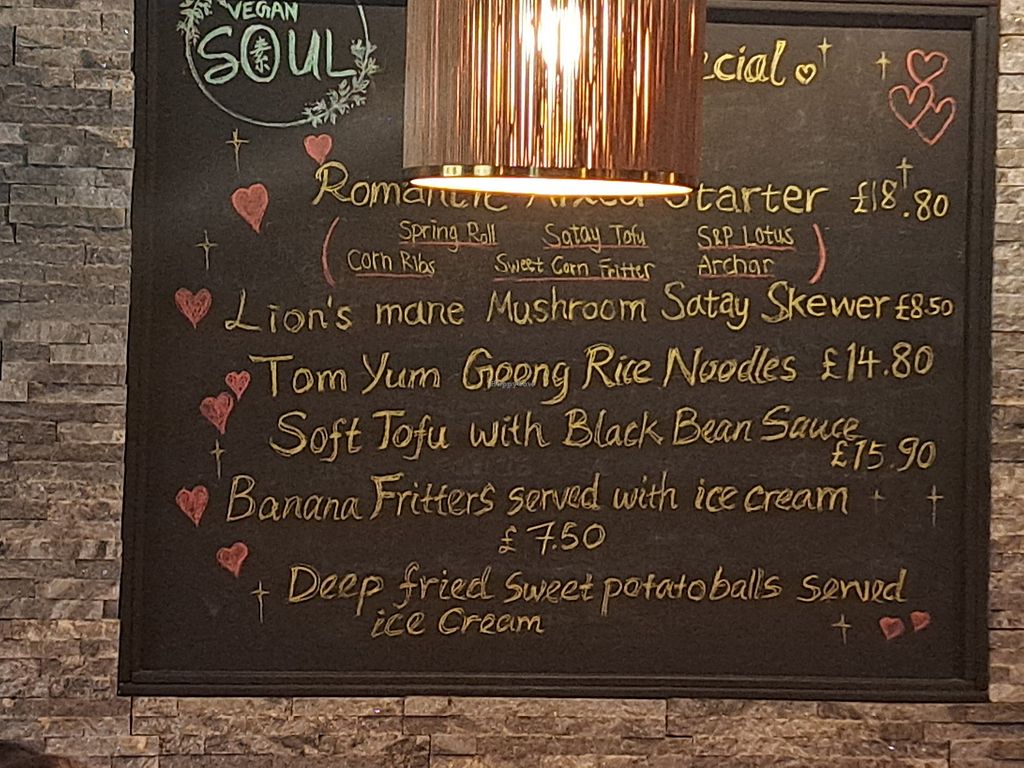 VEGAN
SOUL
素
ecial
Romantic Mixed Starter £18.80
(Spring Roll Satay Tofu S&P Lotus
Corn Ribs Sweet Corn Fritter Archar)
Lion's mane Mushroom Satay Skewer £8.50
Tom Yum Goong Rice Noodles £14.80
Soft Tofu with Black Bean Sauce
£15.90
Banana Fritters served with ice cream
£7.50
Deep fried sweet potato balls served
ice cream